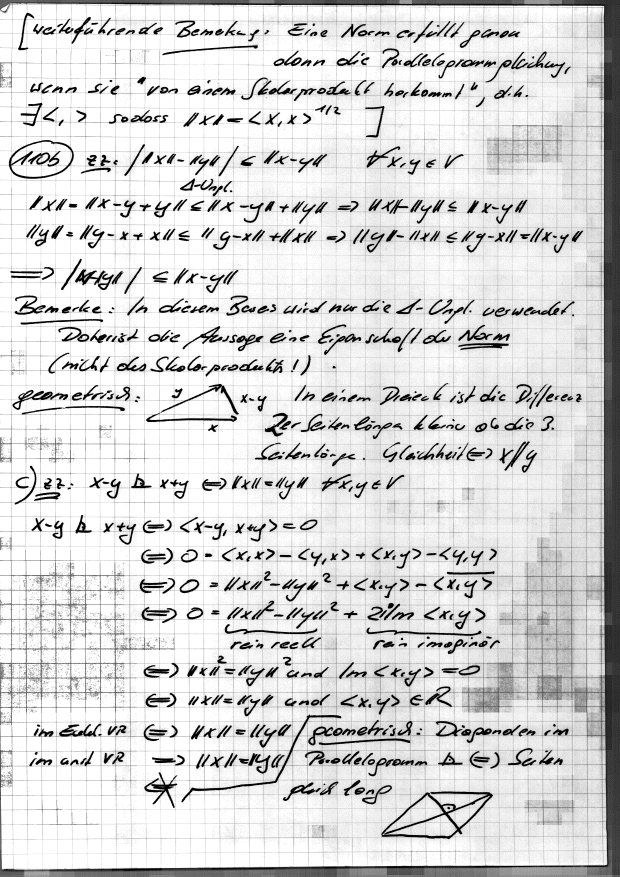 [weiterführende Bemerkung: Eine Norm erfüllt genau
dann die Parallelogrammgleichung,
wenn sie "von einem Skalarprodukt herkommt", d.h.
∃<,> sodass ||x|| = <x,x>^1/2 ]
110b) zz: | ||x|| - ||y|| | ≤ ||x-y|| ∀x,y ∈ V
Δ-Ungl.
||x|| = ||x-y+y|| ≤ ||x-y|| + ||y|| => ||x|| - ||y|| ≤ ||x-y||
||y|| = ||y-x+x|| ≤ ||y-x|| + ||x|| => ||y|| - ||x|| ≤ ||y-x|| = ||x-y||
=> | | ≤ ||x-y||
Bemerke: In diesem Beweis wird nur die Δ-Ungl. verwendet.
Daher ist die Aussage eine Eigenschaft der Norm
(nicht des Skalarprodukts!).
geometrisch: y x-y x In einem Dreieck ist die Differenz
2er Seitenlängen kleiner als die 3.
Seitenlänge. Gleichheit <=> x∥y
c) zz: x-y ⊥ x+y <=> ||x|| = ||y|| ∀x,y ∈ V
x-y ⊥ x+y <=> <x-y, x+y> = 0
<=> 0 = <x,x> - <y,x> + <x,y> - <y,y>
<=> 0 = ||x||² - ||y||² + <x,y> - <x,y>
<=> 0 = ||x||² - ||y||² + 2i Im <x,y>
rein reell rein imaginär
<=> ||x||² = ||y||² und Im <x,y> = 0
<=> ||x|| = ||y|| und <x,y> ∈ ℝ
im Eukl. VR <=> ||x|| = ||y|| geometrisch: Diagonalen im
im unit VR => ||x|| = ||y|| Parallelogramm ⊥ <=> Seiten
<= gleich lang